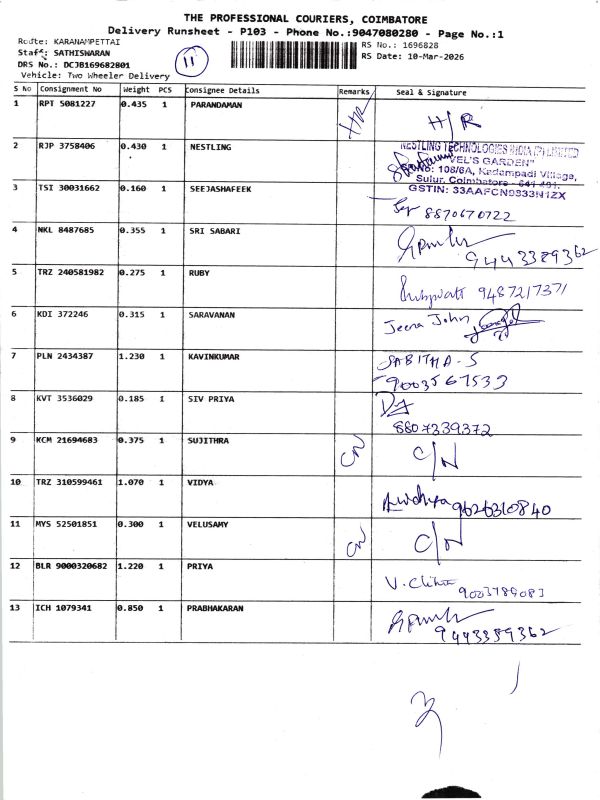 THE PROFESSIONAL COURIERS, COIMBATORE
Delivery Runsheet - P103 - Phone No.:9047080280 - Page No.:1
Route: KARANAMPETTAI
Staff: SATHISHARAN
DRS No.: DCJB169682801
Vehicle: Two Wheeler Delivery
11
RS No.: 1696828
RS Date: 10-Mar-2026
S No Consignment No Weight PCS Consignee Details Remarks Seal & Signature
1 RPT 5081227 0.435 1 PARANDAMAN H/R H/R
2 RJP 3758406 0.430 1 NESTLING
NESTLING TECHNOLOGIES INDIA (P) LIMITED
"VEL'S GARDEN"
No: 108/6A, Kadampadi Village,
Sulur, Coimbatore - 641 401.
GSTIN: 33AAFCN9833N1ZX
3 TSI 30031662 0.160 1 SEEJASHAFEEK
8870670722
4 NKL 8487685 0.355 1 SRI SABARI
9443389362
5 TRZ 240581982 0.275 1 RUBY
9487217371
6 KDI 372246 0.315 1 SARAVANAN Jeena John
7 PLN 2434387 1.230 1 KAVINKUMAR SABITHA-S
9003567533
8 KVT 3536029 0.185 1 SIV PRIYA
8807339372
9 KCM 21694683 0.375 1 SUJITHRA CN C/N
10 TRZ 310599461 1.070 1 VIDYA
9626310840
11 MYS 52501851 0.300 1 VELUSAMY CN C/N
12 BLR 9000320682 1.220 1 PRIYA
9003789083
13 ICH 1079341 0.850 1 PRABHAKARAN
9443389362